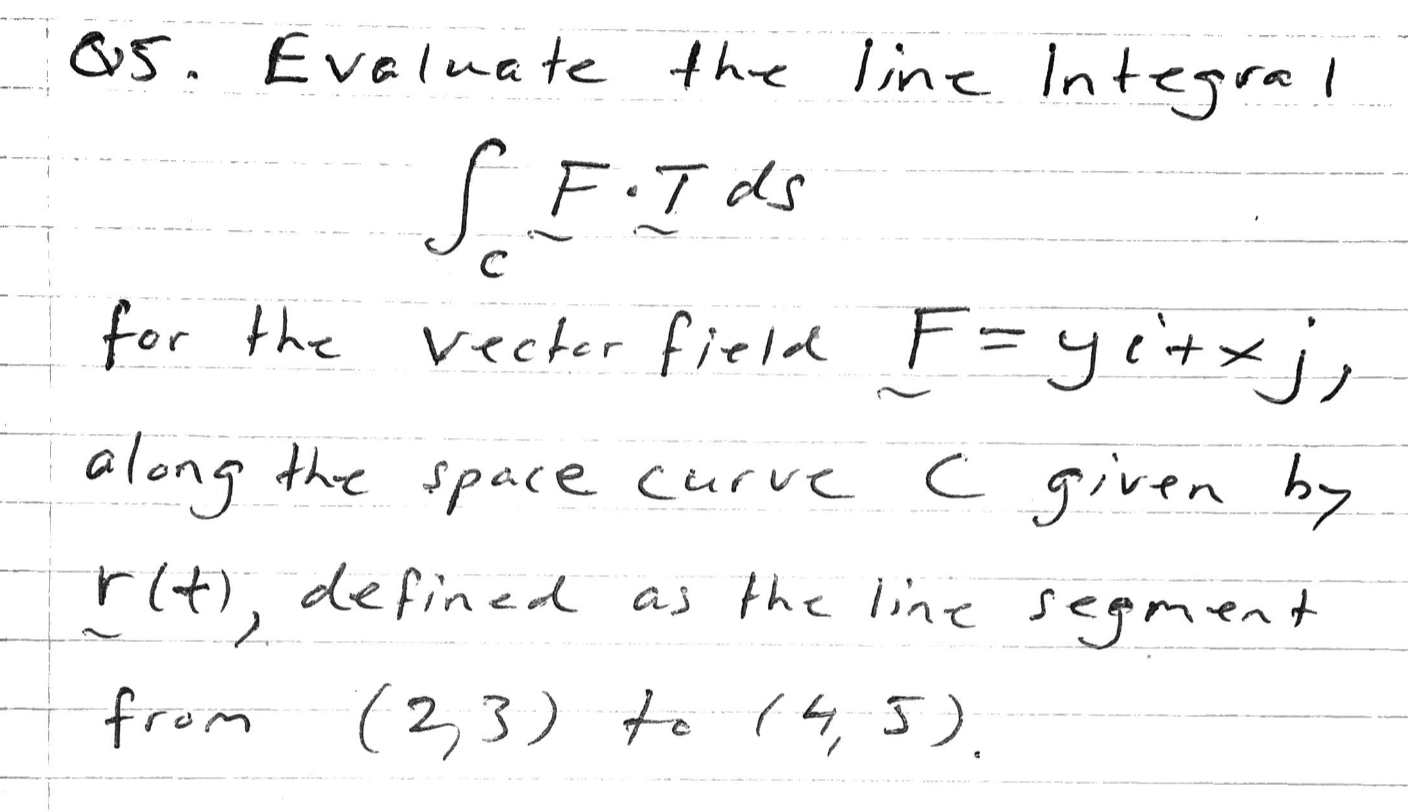 Q5. Evaluate the line Integral
∫_C F̰ · T̰ ds
for the vector field F̰ = yi + xj,
along the space curve C given by
r̰(t), defined as the line segment
from (2,3) to (4,5).